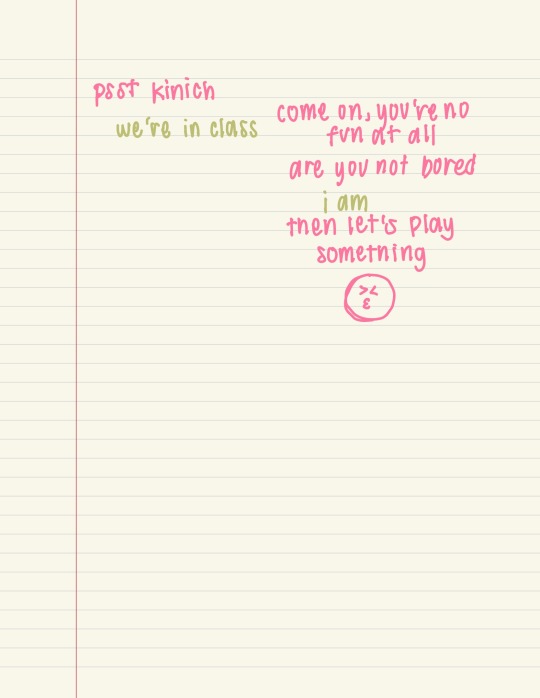 psst kinich
we're in class
come on, you're no
fun at all
are you not bored
i am
then let's play
something